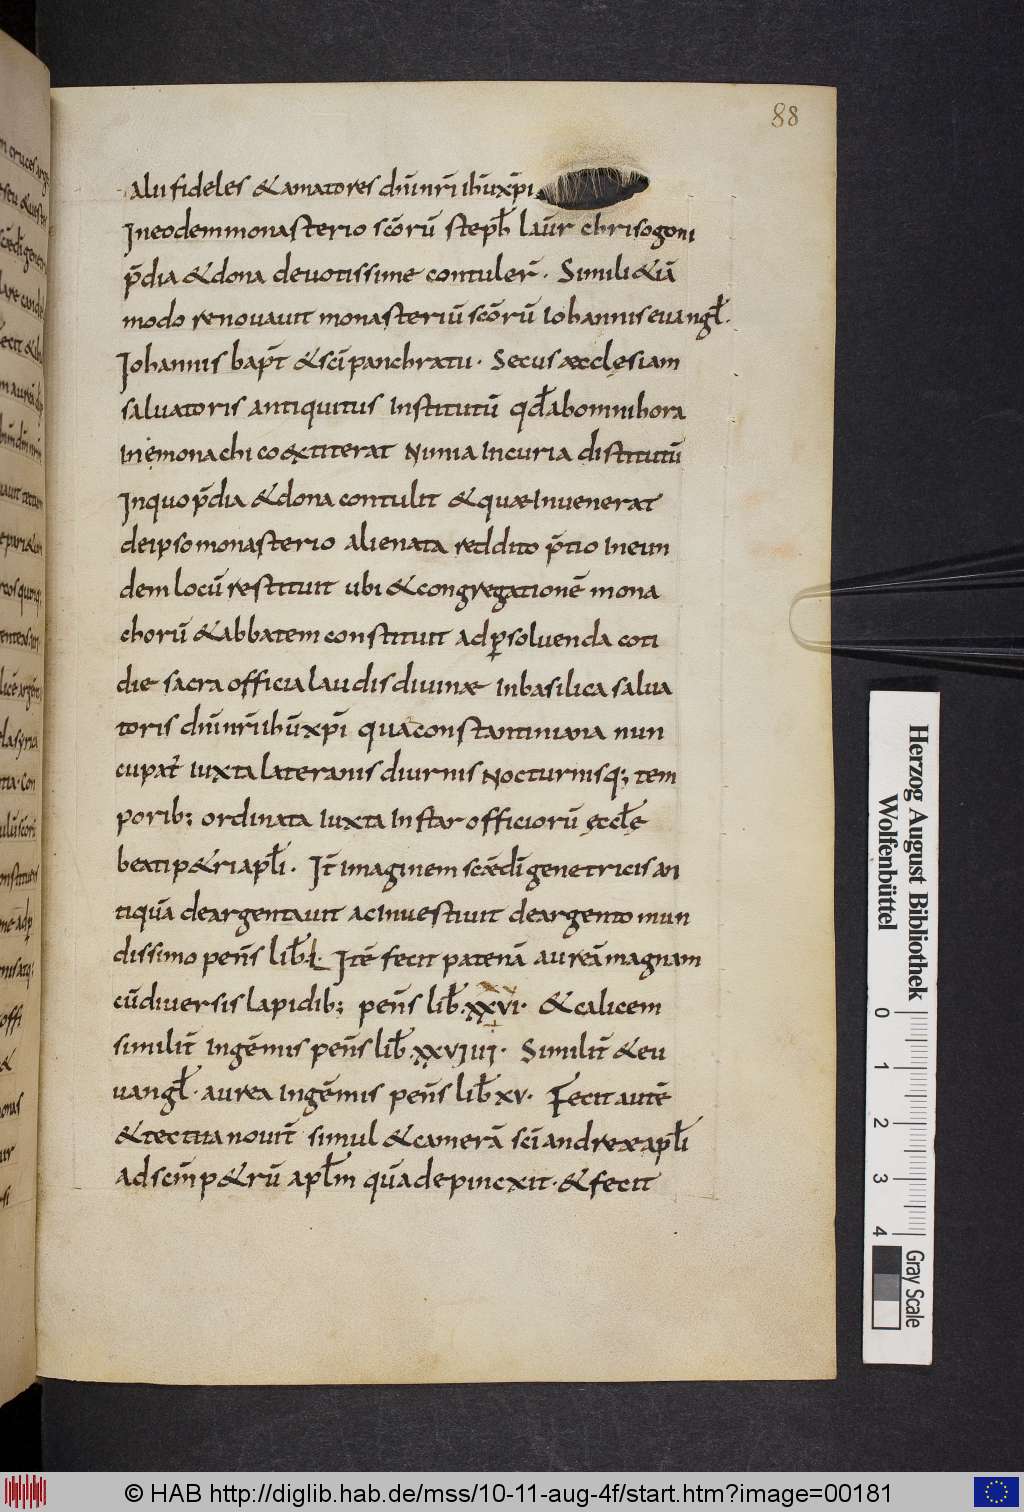 88
alii fideles & amatores dn̄i nr̄i ihū xp̄i
In eodem monasterio scōrū steph̄ laūr chrisogoni
p̄dia & dona devotissime contuler̄. Simili & iā
modo renovavit monasteriū scōrū Iohannis evangl̄.
Iohannis bap̄t & sc̄i panchratii. Secus æcclęsiam
salvatoris antiquitus Institutū qd̄ ab omni hora
In ẹmonachico extiterat Nimia Incuria distitutū
In quo p̄dia & dona contulit & quæ Invenerat
de ipso monasterio alienata reddito p̄tio In eun
dem locū restituit ubi & congregationē mona
chorū & abbatem constituit ad p̱solvenda coti
die sacra officia laudis divinæ In basilica salva
toris dn̄i nr̄i ihū xp̄i qua constantiniana nun
cupat̄ iuxta lateranis diurnis Nocturnisq; tem
porib; ordinata Iuxta Instar officiorū ęccl̄ę
beati p&ri apl̄i. It̄ imaginem scæ dī genetricis an
tiquā deargentavit ac Investivit de argento mun
dissimo pens̄ lib̄.L. Itē fecit patenā aureā magnam
cū diversis lapidib; pens̄ lib̄.xxvi. & calicem
similit̄ Ingēmis pens̄ lib̄.xxviiii. Similit̄ & eu
uangl̄. aurea Ingēmis pens̄ lib̄ xv. Fecit autē
& tectua novit̄ simul & camerā sc̄i andreæ apl̄i
ad scm̄ p&rū apl̄m quā depincxit. & fecit
Herzog August Bibliothek
Wolfenbüttel
0 1 2 3 4
Gray Scale
© HAB http://diglib.hab.de/mss/10-11-aug-4f/start.htm?image=00181